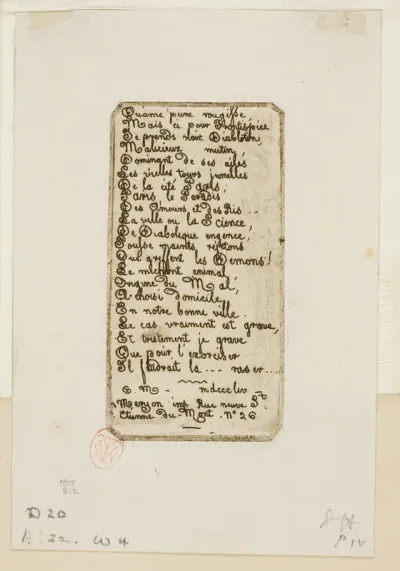 Qu'âme pure rougisse
Mais ci pour Frontispice
Je prends noir Diablotin,
Malicieux mutin,
Dominant de ses ailes
Les vielles tours jumelles
De la cité Paris,
Paris le Paradis
Des Amours et des Ris...
La ville ou la Science,
De Diabolique engence,
Pousse maints rejetons
Que griffent les Démons!
Le méchant animal
Origine du Mal,
A choisi domicile,
En notre bonne ville.
Le cas vraiment est grave,
Et tristement je grave
Que pour l'exorciser
Il faudrait la... raser...
C. M - mdcccliv
Meryon imp Rue neuve St.
Etienne du Mont. N° 26
MN
812
D 20
32. W 4
P IV